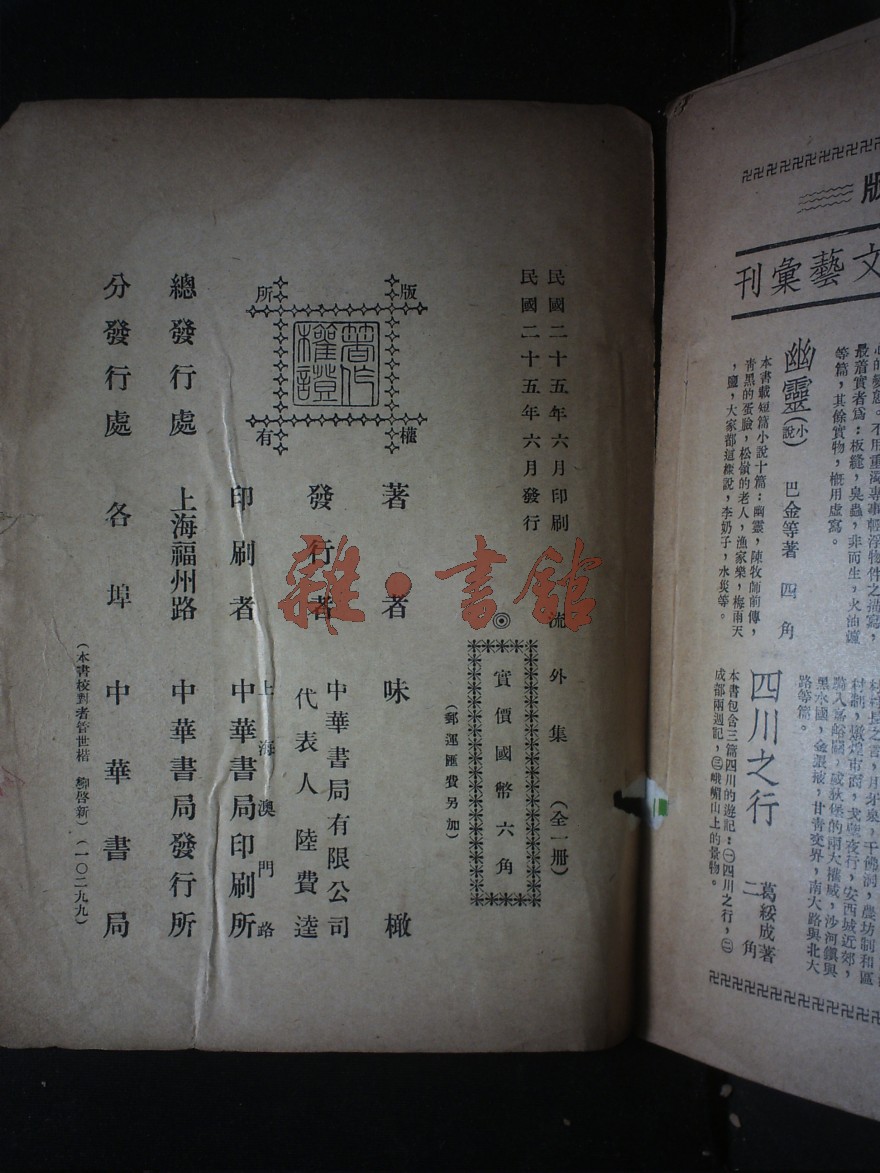 民國二十五年六月印刷
民國二十五年六月發行
流外集（全一册）
◎實價國幣六角
（郵運匯費另加）
版權所有
著作權證
著者 味橄
發行者 中華書局有限公司
代表人 陸費逵
印刷者 上海澳門路
中華書局印刷所
總發行處 上海福州路 中華書局發行所
分發行處 各埠 中華書局
（本書校對者管世楷 柳啓新）（一〇二九九）
雜·書館
版
文藝彙刊
最着實者爲：板縫，臭蟲，非而生，火油爐
等篇，其餘實物，概用虛寫。
幽靈（小說） 巴金等著 四角
本書載短篇小說十篇：幽靈，陳牧師前傳，
青黑的蛋臉，松嶺的老人，漁家樂，梅雨天
，鹽，大家都這樣說，李奶子，水災等。
黑水國，金張掖，甘青交界，南大路與北大
路等篇。
四川之行 葛綏成著 二角
本書包含三篇四川的遊記：㊀四川之行，㊁
成都兩週記，㊂峨嵋山上的景物。